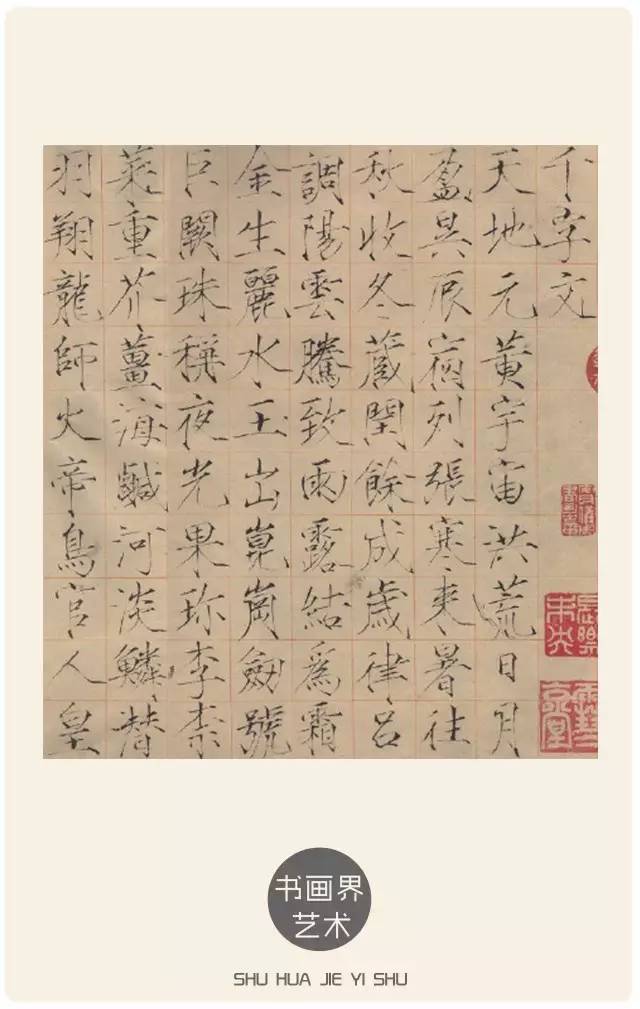 千字文
天地元黃宇宙洪荒日月
盈昃辰宿列張寒来暑往
秋收冬藏閏餘成歲律吕
調陽雲騰致雨露結爲霜
金生麗水玉出崑崗劒號
巨闕珠稱夜光果珍李柰
菜重芥薑海鹹河淡鱗潜
羽翔龍師火帝鳥官人皇
長樂
未央
书画界
艺术
SHU HUA JIE YI SHU